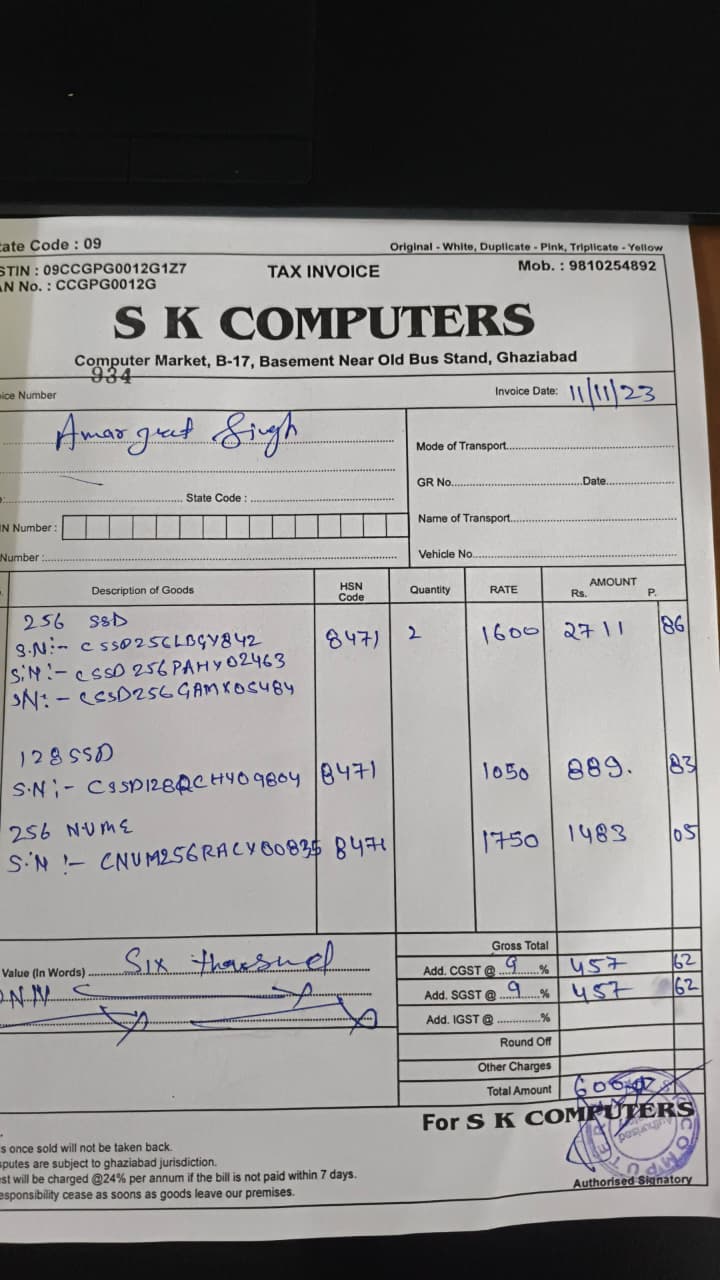 tate Code : 09
Original - White, Duplicate - Pink, Triplicate - Yellow
STIN : 09CCGPG0012G1Z7
TAX INVOICE
Mob. : 9810254892
AN No. : CCGPG0012G
S K COMPUTERS
Computer Market, B-17, Basement Near Old Bus Stand, Ghaziabad
934
ice Number
Invoice Date: 11/11/23
Singh
Mode of Transport
GR No. Date
State Code :
N Number :
Name of Transport
Number :
Vehicle No.
Description of Goods HSN Code Quantity RATE AMOUNT Rs. P.
256 SSD 8471 2 1600 2711 86
S.N:-
S.N:- CSSD256PAHY02463
SN:-
128 SSD 8471 1050 889. 83
S.N:-
256 NUME 8471 1750 1483 05
S.N:-
Gross Total
Value (In Words) Six
Add. CGST @ 9 % 457 62
Add. SGST @ 9 % 457 62
Add. IGST @ %
Round Off
Other Charges
Total Amount
For S K COMPUTERS
s once sold will not be taken back.
sputes are subject to ghaziabad jurisdiction.
st will be charged @24% per annum if the bill is not paid within 7 days.
esponsibility cease as soons as goods leave our premises.
Authorised Signatory